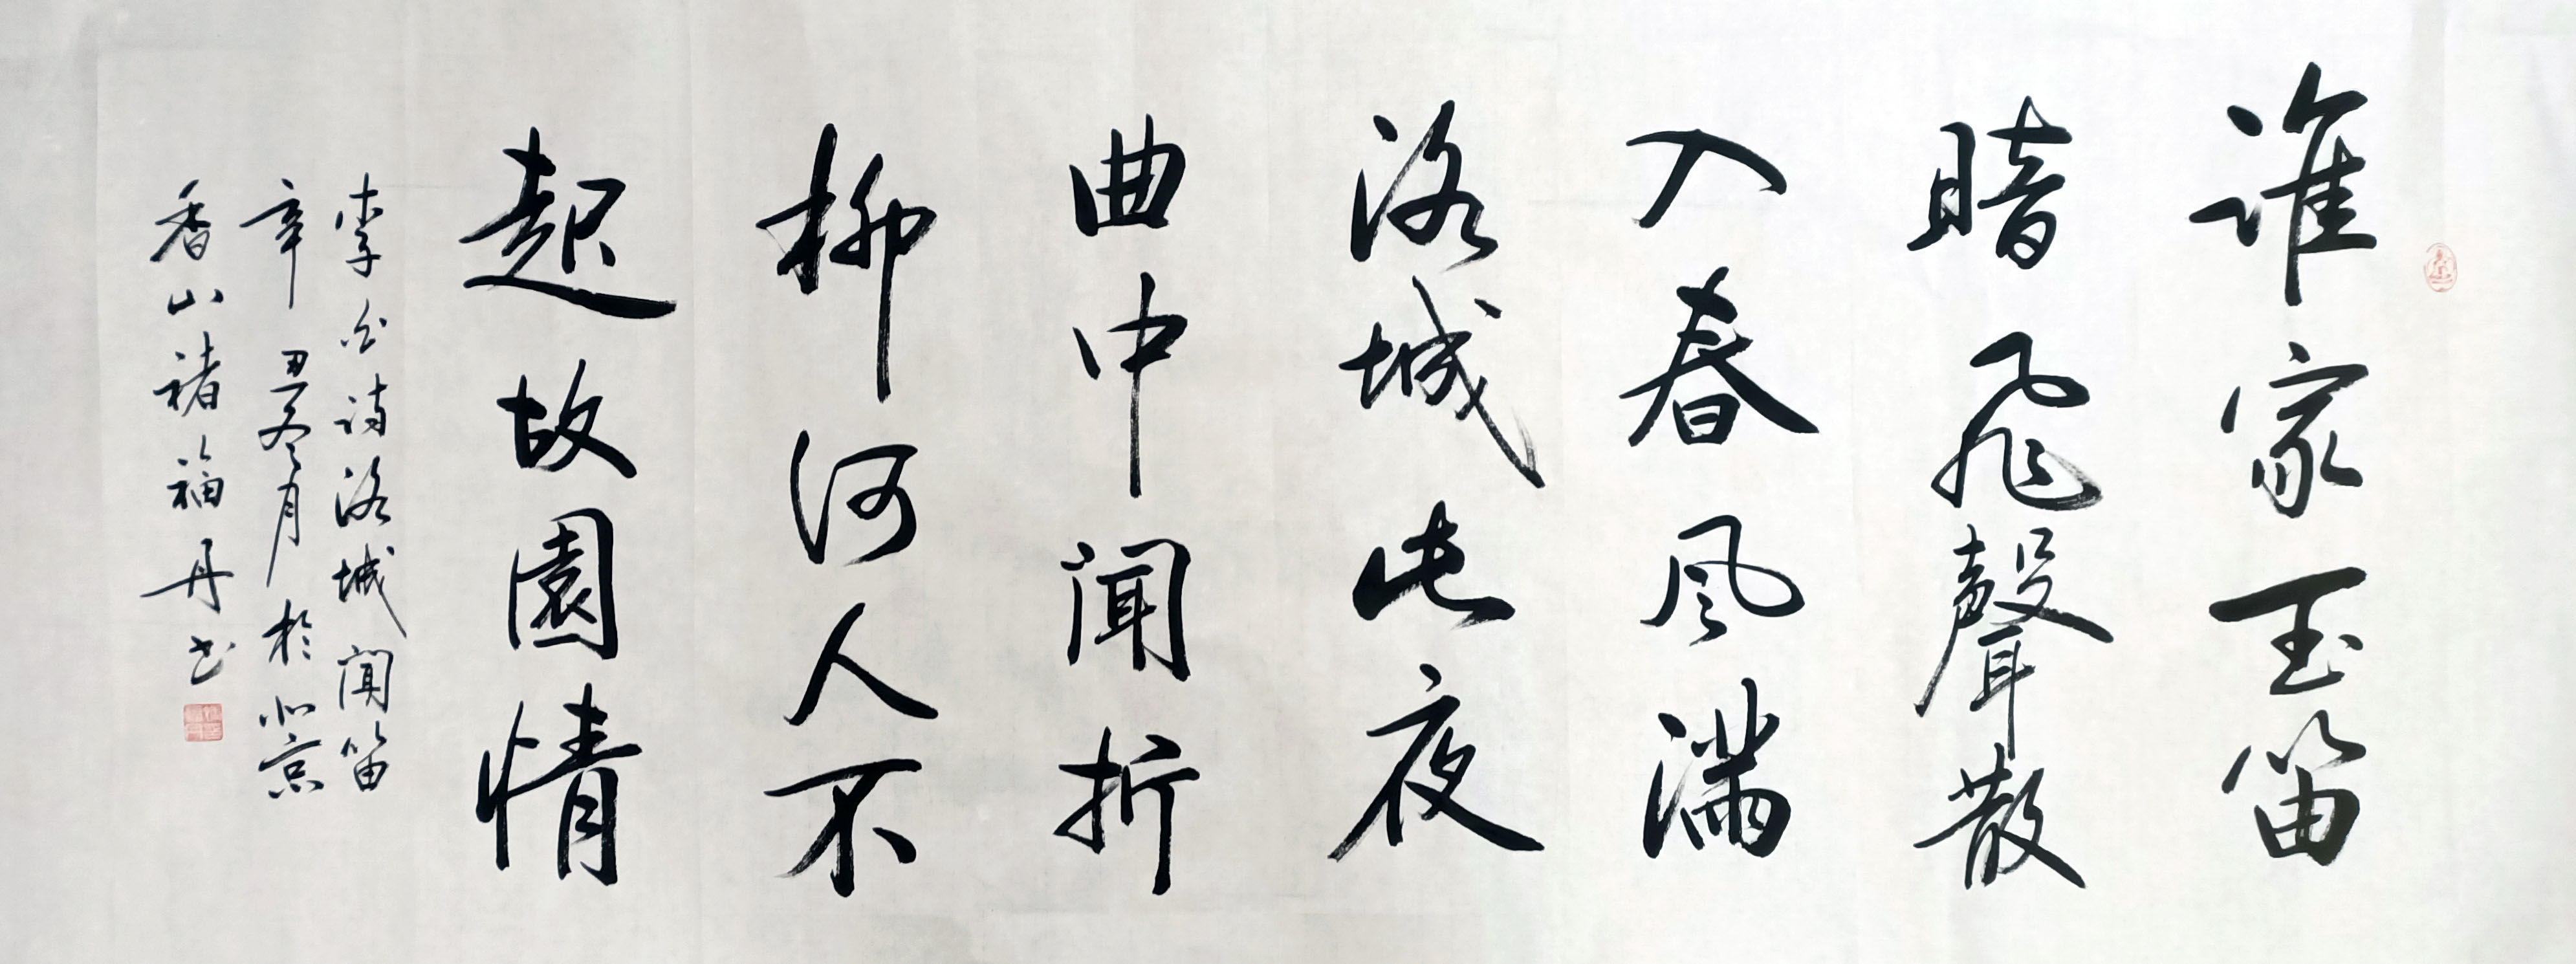 谁家玉笛
暗飛聲散
入春风满
洛城此夜
曲中闻折
柳何人不
起故園情
李白诗洛城闻笛
辛丑冬月於北京
香山褚福丹书